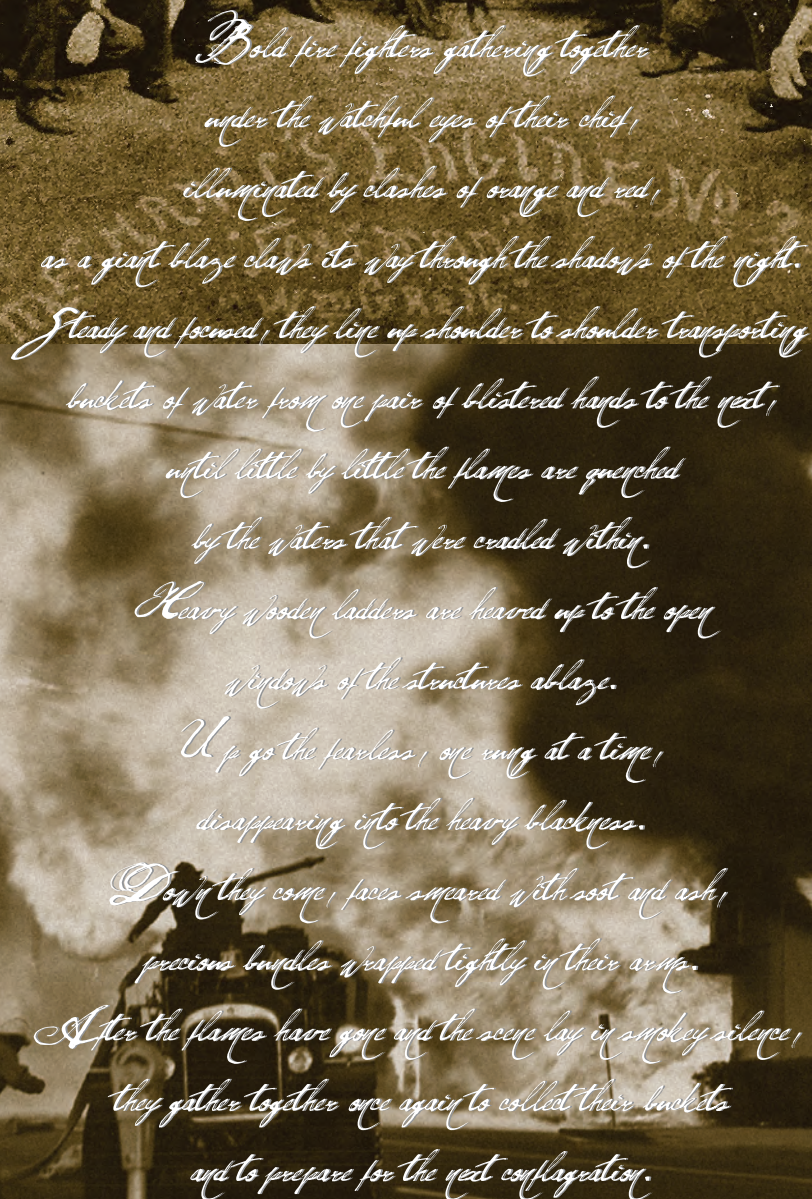 Bold fire fighters gathering together
under the watchful eyes of their chief,
illuminated by clashes of orange and red,
as a giant blaze claws its way through the shadows of the night.
Steady and focused, they line up shoulder to shoulder transporting
buckets of water from one pair of blistered hands to the next,
until little by little the flames are quenched
by the waters that were cradled within.
Heavy wooden ladders are heaved up to the open
windows of the structures ablaze.
Up go the fearless, one rung at a time,
disappearing into the heavy blackness.
Down they come, faces smeared with soot and ash,
precious bundles wrapped tightly in their arms.
After the flames have gone and the scene lay in smokey silence,
they gather together once again to collect their buckets
and to prepare for the next conflagration.